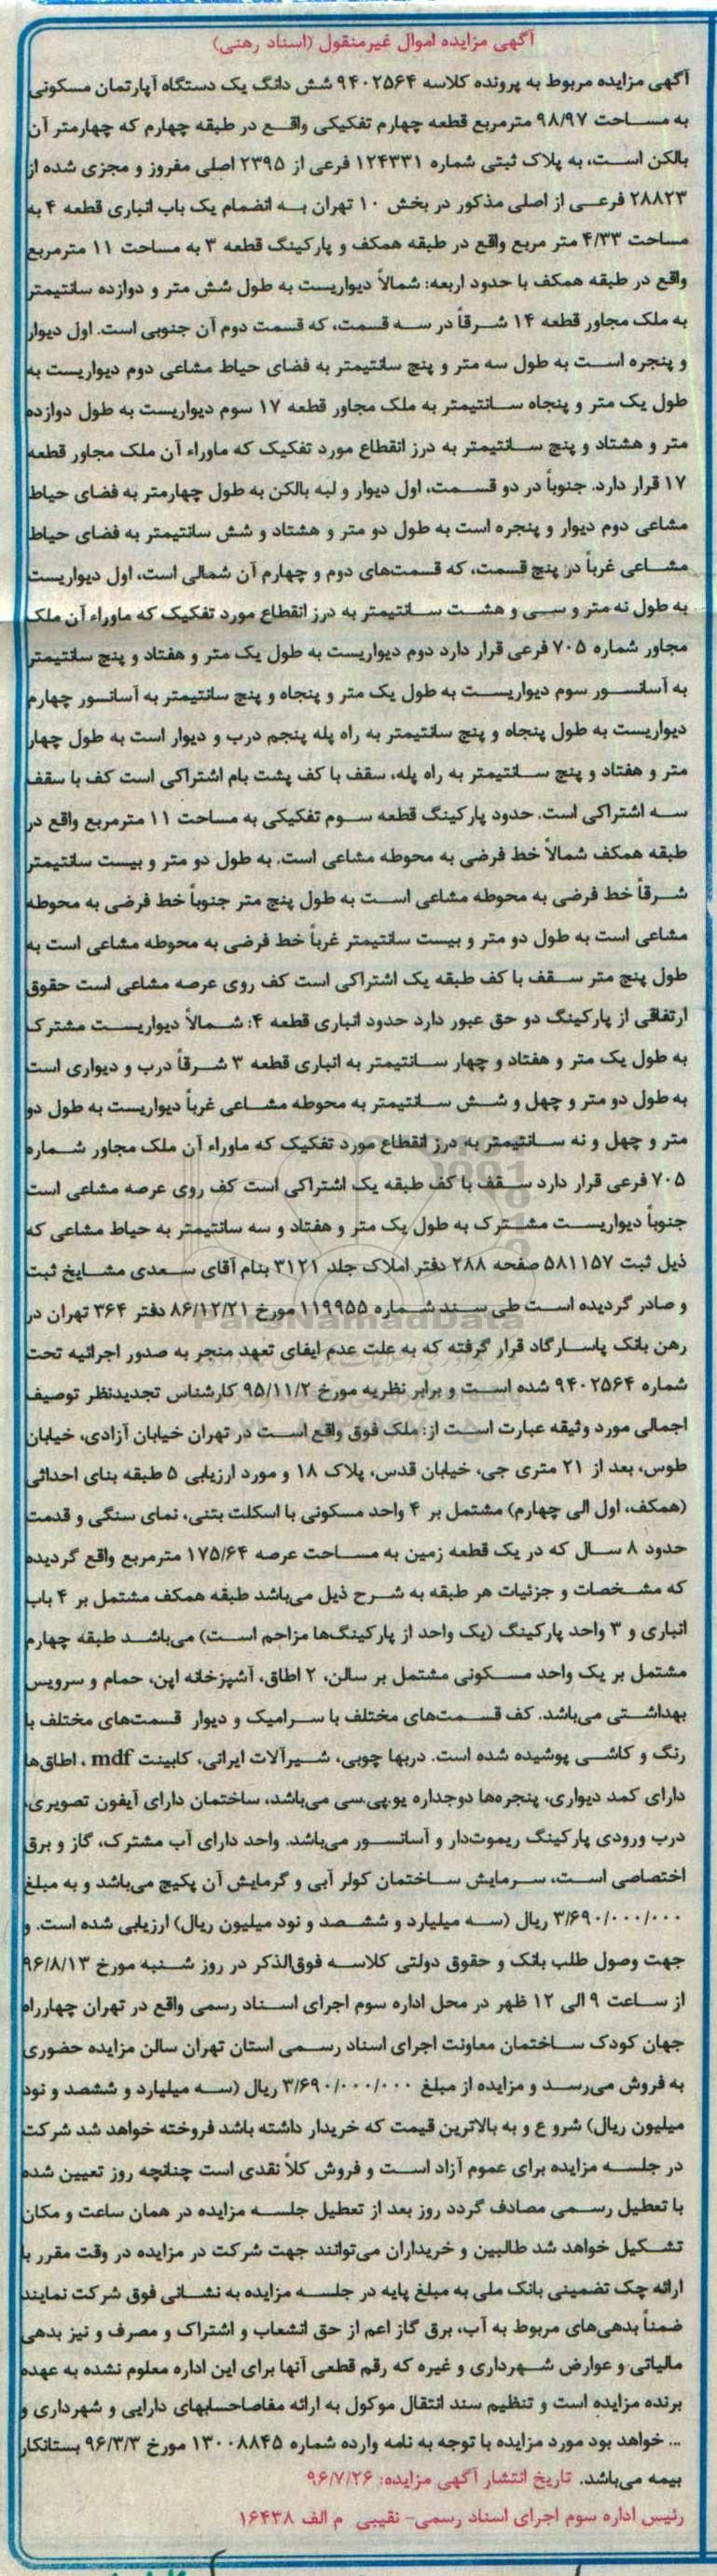 آگهی مزایده اموال غیرمنقول (اسناد رهنی)
آگهی مزایده مربوط به پرونده کلاسه ۹۴۰۲۵۶۴ شش دانگ یک دستگاه آپارتمان مسکونی
به مساحت ۹۸/۹۷ مترمربع قطعه چهارم تفکیکی واقع در طبقه چهارم که چهارمتر آن
بالکن است، به پلاک ثبتی شماره ۱۲۴۳۳۱ فرعی از ۲۳۹۵ اصلی مفروز و مجزی شده از
۲۸۸۲۳ فرعی از اصلی مذکور در بخش ۱۰ تهران به انضمام یک باب انباری قطعه ۴ به
مساحت ۴/۳۳ متر مربع واقع در طبقه همکف و پارکینگ قطعه ۳ به مساحت ۱۱ مترمربع
واقع در طبقه همکف با حدود اربعه: شمالاً دیواریست به طول شش متر و دوازده سانتیمتر
به ملک مجاور قطعه ۱۴ شرقاً در سه قسمت، که قسمت دوم آن جنوبی است. اول دیوار
و پنجره است به طول سه متر و پنج سانتیمتر به فضای حیاط مشاعی دوم دیواریست به
طول یک متر و پنجاه سانتیمتر به ملک مجاور قطعه ۱۷ سوم دیواریست به طول دوازده
متر و هشتاد و پنج سانتیمتر به درز انقطاع مورد تفکیک که ماوراء آن ملک مجاور قطعه
۱۷ قرار دارد. جنوباً در دو قسمت، اول دیوار و لبه بالکن به طول چهارمتر به فضای حیاط
مشاعی دوم دیوار و پنجره است به طول دو متر و هشتاد و شش سانتیمتر به فضای حیاط
مشاعی غرباً در پنج قسمت، که قسمت‌های دوم و چهارم آن شمالی است، اول دیواریست
به طول نه متر و سی و هشت سانتیمتر به درز انقطاع مورد تفکیک که ماوراء آن ملک
مجاور شماره ۷۰۵ فرعی قرار دارد دوم دیواریست به طول یک متر و هفتاد و پنج سانتیمتر
به آسانسور سوم دیواریست به طول یک متر و پنجاه و پنج سانتیمتر به آسانسور چهارم
دیواریست به طول پنجاه و پنج سانتیمتر به راه پله پنجم درب و دیوار است به طول چهار
متر و هفتاد و پنج سانتیمتر به راه پله، سقف با کف پشت بام اشتراکی است کف با سقف
سه اشتراکی است. حدود پارکینگ قطعه سوم تفکیکی به مساحت ۱۱ مترمربع واقع در
طبقه همکف شمالاً خط فرضی به محوطه مشاعی است. به طول دو متر و بیست سانتیمتر
شرقاً خط فرضی به محوطه مشاعی است به طول پنج متر جنوباً خط فرضی به محوطه
مشاعی است به طول دو متر و بیست سانتیمتر غرباً خط فرضی به محوطه مشاعی است به
طول پنج متر سقف با کف طبقه یک اشتراکی است کف روی عرصه مشاعی است حقوق
ارتفاقی از پارکینگ دو حق عبور دارد حدود انباری قطعه ۴: شمالاً دیواریست مشترک
به طول یک متر و هفتاد و چهار سانتیمتر به انباری قطعه ۳ شرقاً درب و دیواری است
به طول دو متر و چهل و شش سانتیمتر به محوطه مشاعی غرباً دیواریست به طول دو
متر و چهل و نه سانتیمتر به درز انقطاع مورد تفکیک که ماوراء آن ملک مجاور شماره
۷۰۵ فرعی قرار دارد سقف با کف طبقه یک اشتراکی است کف روی عرصه مشاعی است
جنوباً دیواریست مشترک به طول یک متر و هفتاد و سه سانتیمتر به حیاط مشاعی که
ذیل ثبت ۵۸۱۱۵۷ صفحه ۲۸۸ دفتر املاک جلد ۳۱۲۱ بنام آقای سعدی مشایخ ثبت
و صادر گردیده است طی سند شماره ۱۱۹۹۵۵ مورخ ۸۶/۱۲/۲۱ دفتر ۳۶۴ تهران در
رهن بانک پاسارگاد قرار گرفته که به علت عدم ایفای تعهد منجر به صدور اجرائیه تحت
شماره ۹۴۰۲۵۶۴ شده است و برابر نظریه مورخ ۹۵/۱۱/۲ کارشناس تجدیدنظر توصیف
اجمالی مورد وثیقه عبارت است از: ملک فوق واقع است در تهران خیابان آزادی، خیابان
طوس، بعد از ۲۱ متری جی، خیابان قدس، پلاک ۱۸ و مورد ارزیابی ۵ طبقه بنای احداثی
(همکف، اول الی چهارم) مشتمل بر ۴ واحد مسکونی با اسکلت بتنی، نمای سنگی و قدمت
حدود ۸ سال که در یک قطعه زمین به مساحت عرصه ۱۷۵/۶۴ مترمربع واقع گردیده
که مشخصات و جزئیات هر طبقه به شرح ذیل می‌باشد طبقه همکف مشتمل بر ۴ باب
انباری و ۳ واحد پارکینگ (یک واحد از پارکینگ‌ها مزاحم است) می‌باشد طبقه چهارم
مشتمل بر یک واحد مسکونی مشتمل بر سالن، ۲ اطاق، آشپزخانه اپن، حمام و سرویس
بهداشتی می‌باشد. کف قسمت‌های مختلف با سرامیک و دیوار قسمت‌های مختلف با
رنگ و کاشی پوشیده شده است. دربها چوبی، شیرآلات ایرانی، کابینت mdf، اطاق‌ها
دارای کمد دیواری، پنجره‌ها دوجداره یو.پی.سی می‌باشد، ساختمان دارای آیفون تصویری،
درب ورودی پارکینگ ریموت‌دار و آسانسور می‌باشد. واحد دارای آب مشترک، گاز و برق
اختصاصی است، سرمایش ساختمان کولر آبی و گرمایش آن پکیج می‌باشد و به مبلغ
۳/۶۹۰/۰۰۰/۰۰۰ ریال (سه میلیارد و ششصد و نود میلیون ریال) ارزیابی شده است. و
جهت وصول طلب بانک و حقوق دولتی کلاسه فوق‌الذکر در روز شنبه مورخ ۹۶/۸/۱۳
از ساعت ۹ الی ۱۲ ظهر در محل اداره سوم اجرای اسناد رسمی واقع در تهران چهارراه
جهان کودک ساختمان معاونت اجرای اسناد رسمی استان تهران سالن مزایده حضوری
به فروش می‌رسد و مزایده از مبلغ ۳/۶۹۰/۰۰۰/۰۰۰ ریال (سه میلیارد و ششصد و نود
میلیون ریال) شروع و به بالاترین قیمت که خریدار داشته باشد فروخته خواهد شد شرکت
در جلسه مزایده برای عموم آزاد است و فروش کلاً نقدی است چنانچه روز تعیین شده
با تعطیل رسمی مصادف گردد روز بعد از تعطیل جلسه مزایده در همان ساعت و مکان
تشکیل خواهد شد طالبین و خریداران می‌توانند جهت شرکت در مزایده در وقت مقرر با
ارائه چک تضمینی بانک ملی به مبلغ پایه در جلسه مزایده به نشانی فوق شرکت نمایند
ضمناً بدهی‌های مربوط به آب، برق گاز اعم از حق انشعاب و اشتراک و مصرف و نیز بدهی
مالیاتی و عوارض شهرداری و غیره که رقم قطعی آنها برای این اداره معلوم نشده به عهده
برنده مزایده است و تنظیم سند انتقال موکول به ارائه مفاصاحسابهای دارایی و شهرداری و
... خواهد بود مورد مزایده با توجه به نامه وارده شماره ۱۳۰۰۸۸۴۵ مورخ ۹۶/۳/۳ بستانکار
بیمه می‌باشد. تاریخ انتشار آگهی مزایده: ۹۶/۷/۲۶
رئیس اداره سوم اجرای اسناد رسمی- نقیبی م الف ۱۶۴۳۸